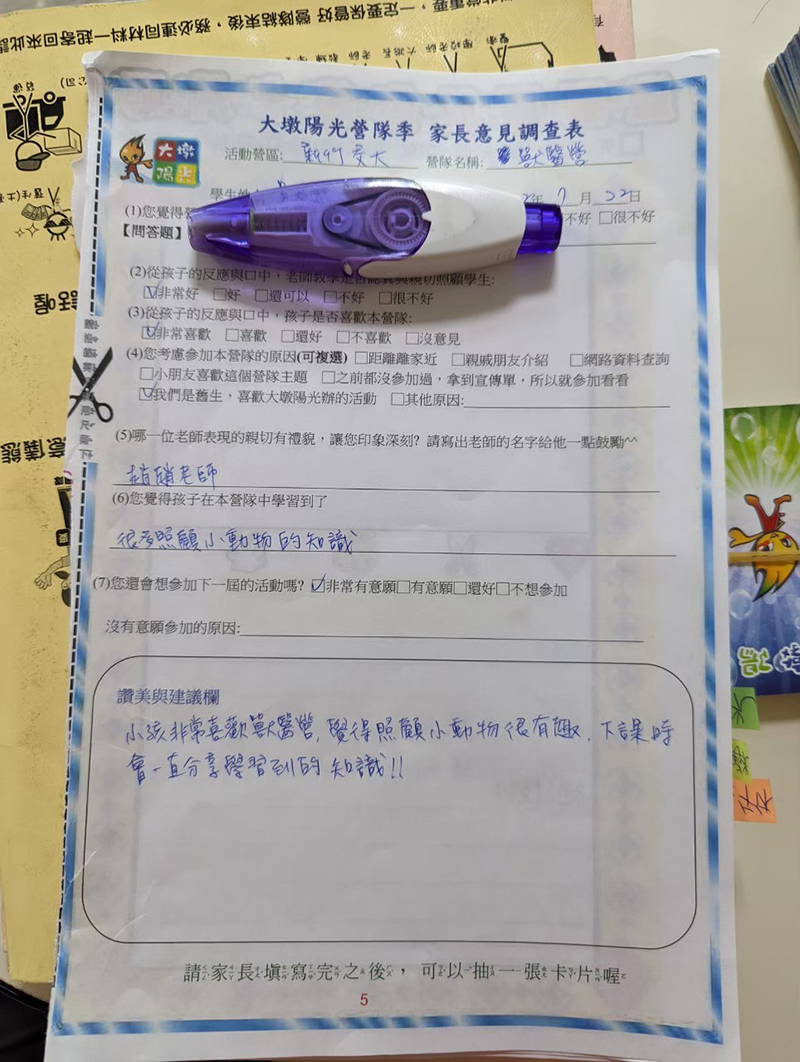 大墩陽光營隊季 家長意見調查表
大墩
陽光
活動營區: 新竹交大 營隊名稱: 獸醫營
學生姓
年 7 月 22 日
(1)您覺得
不好 □很不好
【問答題】
(2)從孩子的反應與口中，老師教學是否認真與親切照顧學生:
☑非常好 □好 □還可以 □不好 □很不好
(3)從孩子的反應與口中，孩子是否喜歡本營隊:
☑非常喜歡 □喜歡 □還好 □不喜歡 □沒意見
(4)您考慮參加本營隊的原因(可複選) □距離離家近 □親戚朋友介紹 □網路資料查詢
□小朋友喜歡這個營隊主題 □之前都沒參加過，拿到宣傳單，所以就參加看看
☑我們是舊生，喜歡大墩陽光辦的活動 □其他原因:
(5)哪一位老師表現的親切有禮貌，讓您印象深刻? 請寫出老師的名字給他一點鼓勵^^
老師
(6)您覺得孩子在本營隊中學習到了
很多照顧小動物的知識
(7)您還會想參加下一屆的活動嗎? ☑非常有意願□有意願□還好□不想參加
沒有意願參加的原因:
讚美與建議欄
小孩非常喜歡獸醫營, 覺得照顧小動物很有趣, 下課時
會一直分享學習到的知識!!
請家長填寫完之後，可以抽一張卡片喔
5